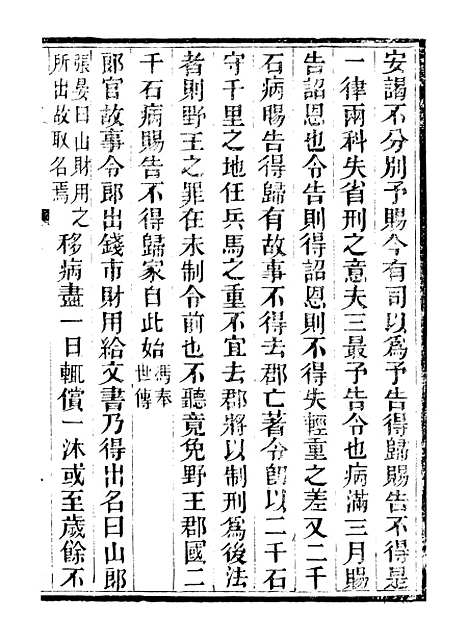 安謁不分別予賜今有司以爲予告得歸賜告不得是
一律兩科失省刑之意夫三最予告令也病滿三月賜
告詔恩也令告則得詔恩則不得失輕重之差又二千
石病賜告得歸有故事不得去郡亡著令卽以二千石
守千里之地任兵馬之重不宜去郡將以制刑爲後法
者則野王之罪在未制令前也不聽竟免野王郡國二
千石病賜告不得歸家自此始馮奉世傳
郞官故事令郞出錢市財用給文書乃得出名曰山郞
張晏曰山財用之所出故取名焉移病盡一日輒償一沐或至歲餘不